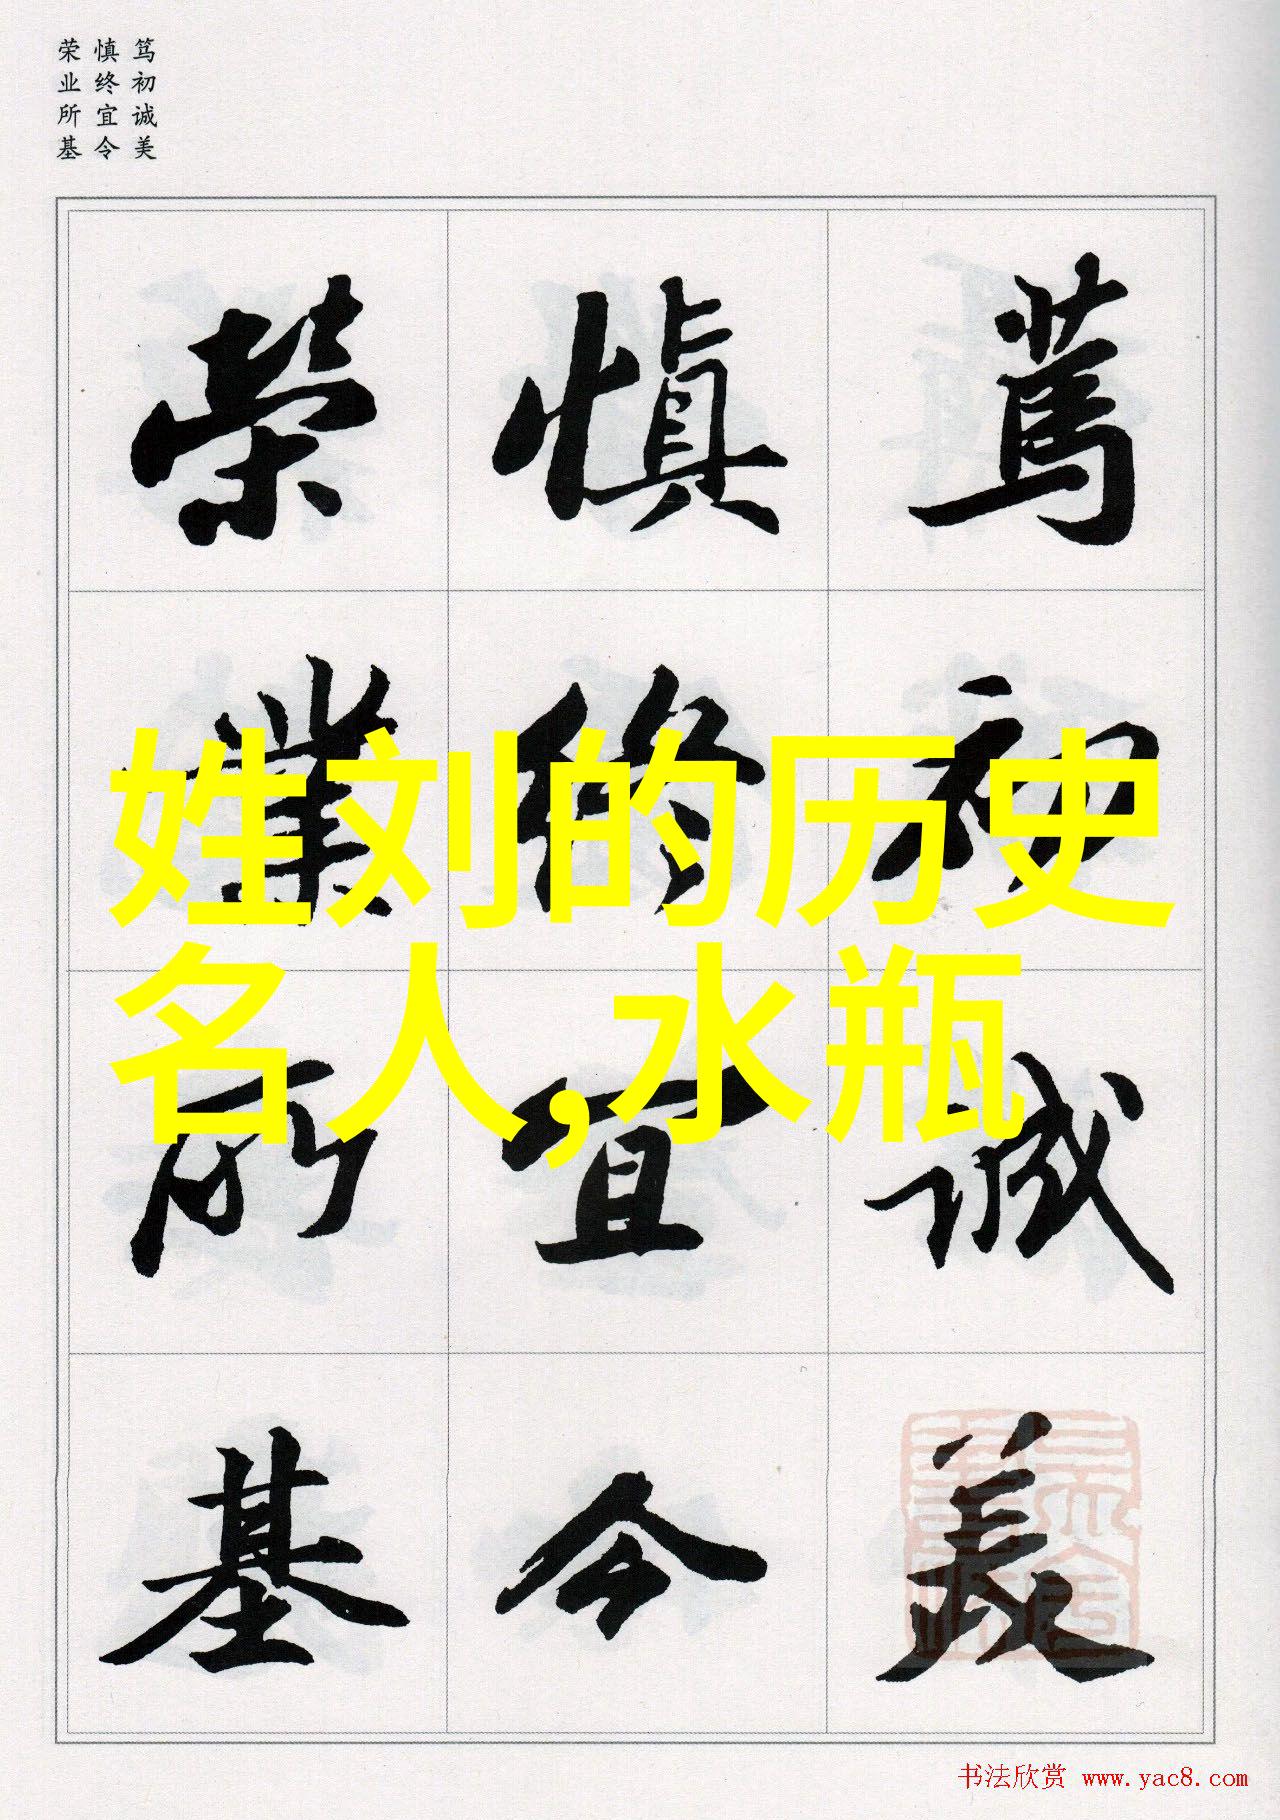 笃初诚美
慎终宜令
荣业所基
篤初誠美
慎終宜令
榮業所基
姓刘的历史
名人,水瓶
书法欣赏 www.yac8.com